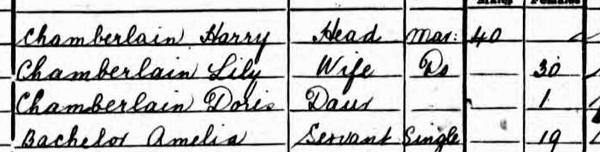 Chamberlain Harry Head Mar: 40
Chamberlain Lily Wife Do 30
Chamberlain Doris Daur 1
Bachelor Amelia Servant Single 19